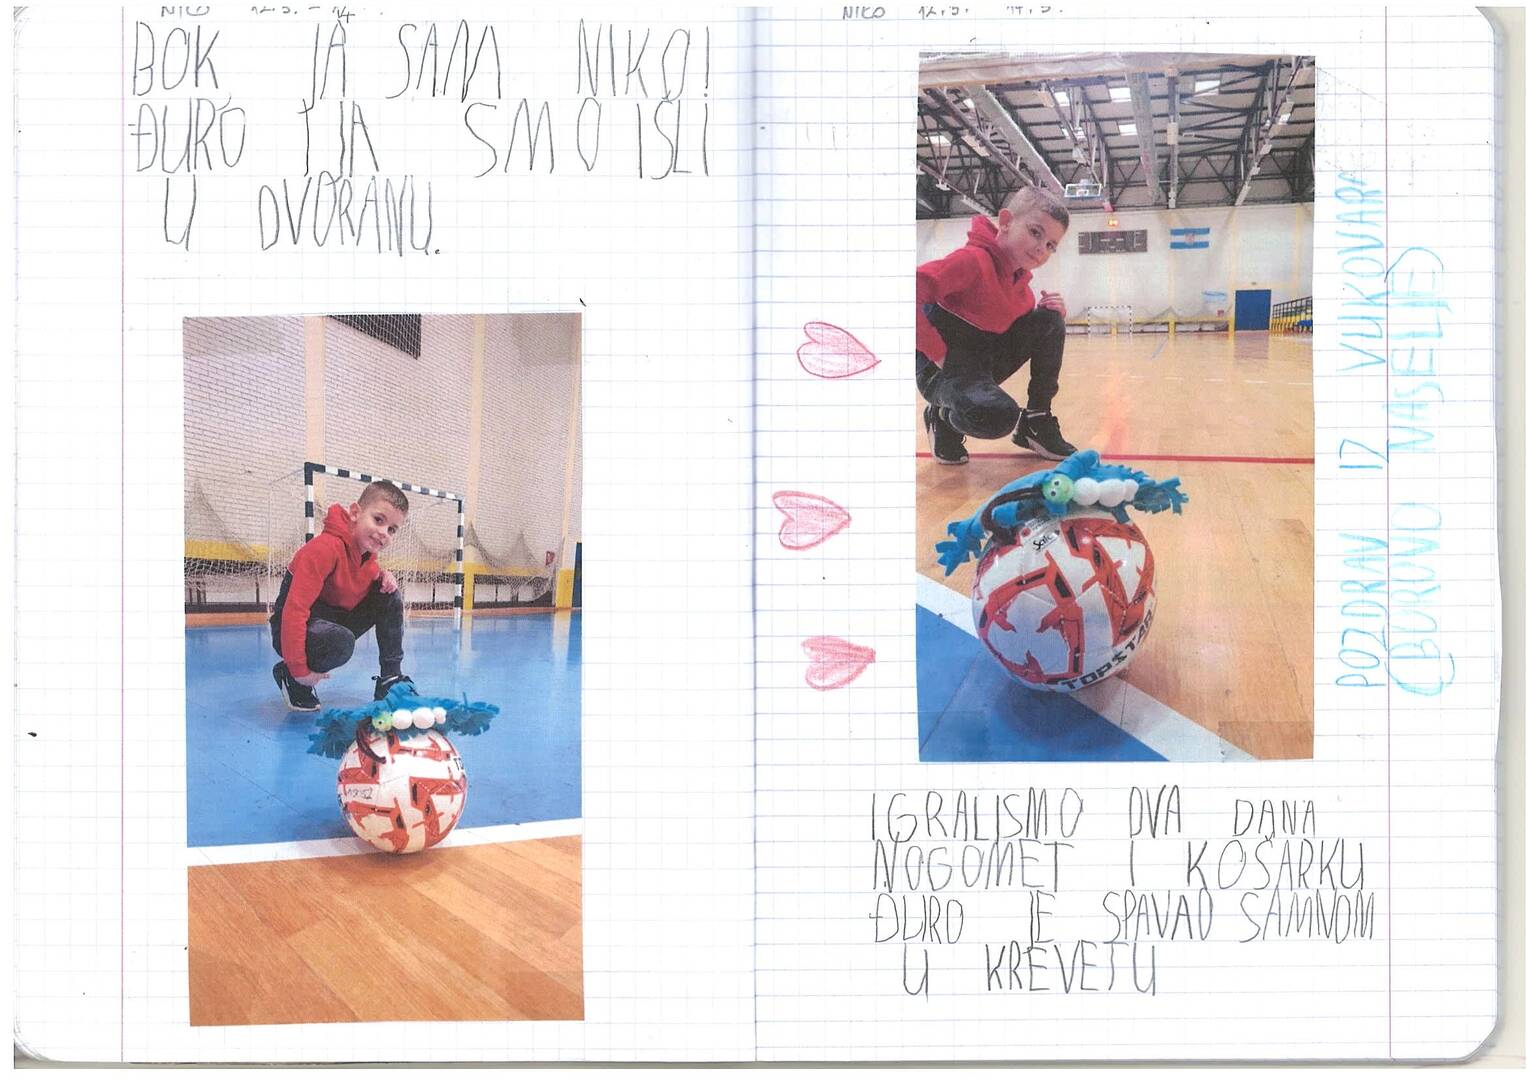 NIKO 12.3. - 14.
BOK, JA SAM NIKO!
ĐURO I JA SMO IŠLI
U DVORANU.
NIKO 12.3. 14.3.
Select
TOPSTAR
POZDRAV IZ VUKOVARA
(BOROVO NASELJE)
IGRALISMO DVA DANA
NOGOMET I KOŠARKU
ĐURO JE SPAVAO SAMNOM
U KREVETU